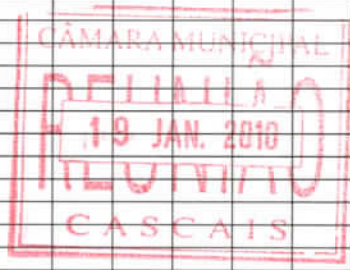 CÂMARA MUNICIPAL
REUNIÃO
19 JAN. 2010
CASCAIS